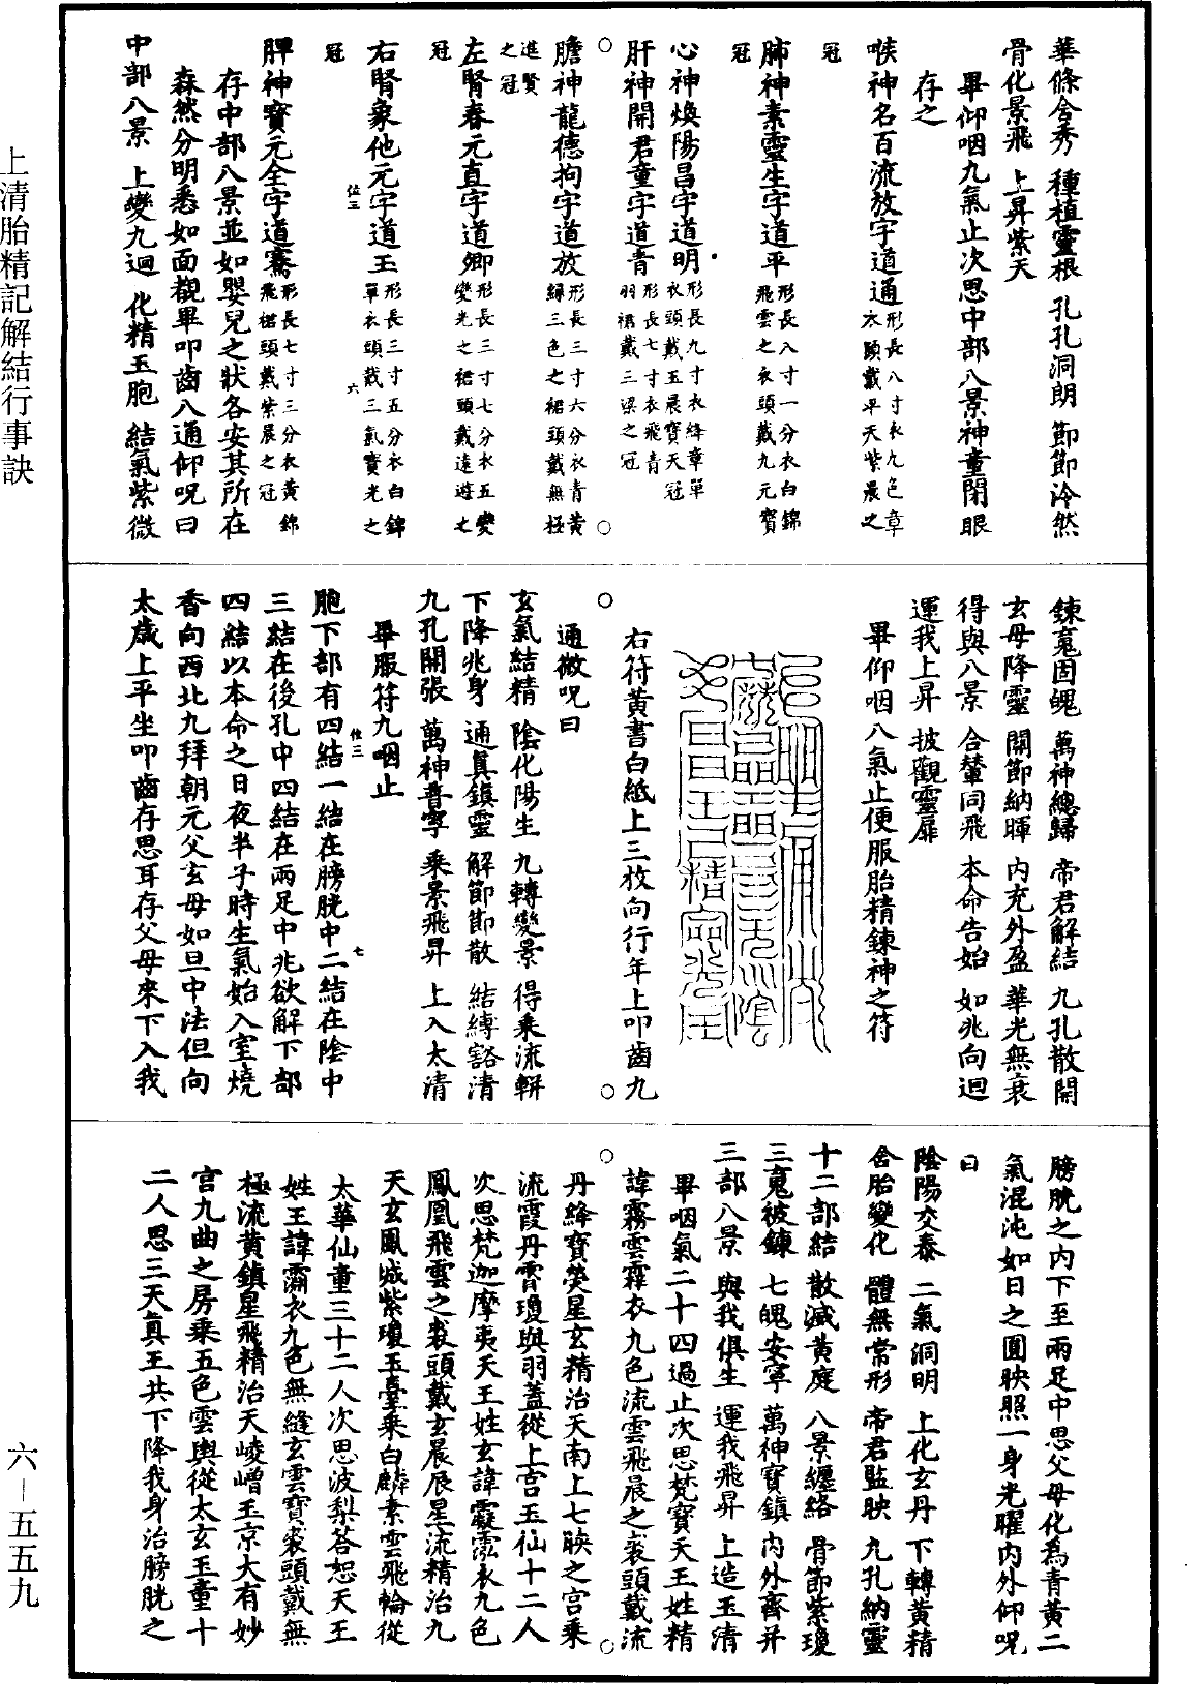 上清胎精記解結行事訣
六－五五九
華條含秀　種植靈根　孔孔洞朗　節節冷然
骨化景飛　上昇紫天
畢仰咽九氣止次思中部八景神童閉眼
存之
喉神名百流放字道通形長八寸衣九色章衣頭戴平天紫晨之
冠
肺神素靈生字道平形長八寸一分衣白錦飛雲之衣頭戴九元寶
冠
心神煥陽昌字道明形長九寸衣絳章單衣頭戴玉晨寶天冠
肝神開君童字道青形長七寸衣飛青羽裙戴三梁之冠
膽神龍德拘字道放形長三寸六分衣青黃綠三色之裙頭戴無極
進賢之冠
左腎春元直字道卿形長三寸七分衣五變變光之裙頭戴遠遊之
冠
右腎象他元字道王形長三寸五分衣白錦單衣頭戴三氣寶光之
冠
脾神寶元全字道騫形長七寸三分衣黃錦飛裙頭戴紫晨之冠
存中部八景並如嬰兒之狀各安其所在
森然分明悉如面觀畢叩齒八通仰呪曰
中部八景　上變九迴　化精玉胞　結氣紫微
鍊䰟固魄　萬神總歸　帝君解結　九孔散開
玄母降靈　開節納暉　內充外盈　華光無衰
得與八景　合輦同飛　本命告始　如兆向迴
運我上昇　披觀靈扉
畢仰咽八氣止便服胎精鍊神之符
右符黃書白紙上三枚向行年上叩齒九
通微呪曰
玄氣結精　陰化陽生　九轉變景　得乘流軿
下降兆身　通真鎮靈　解節節散　結縛豁清
九孔開張　萬神普寧　乘景飛昇　上入太清
畢服符九咽止
胞下部有四結一結在膀胱中二結在陰中
三結在後孔中四結在兩足中兆欲解下部
四結以本命之日夜半子時生氣始入室燒
香向西北九拜朝元父玄母如旦中法但向
太歲上平坐叩齒存思耳存父母來下入我
膀胱之內下至兩足中思父母化為青黃二
氣混沌如日之圓映照一身光曜內外仰呪
曰
陰陽交泰　二氣洞明　上化玄丹　下轉黃精
含胎變化　體無常形　帝君監映　九孔納靈
十二部結　散滅黃庭　八景纏絡　骨節紫瓊
三䰟被鍊　七魄安寧　萬神寶鎮　內外齊并
三部八景　與我俱生　運我飛昇　上造玉清
畢咽氣二十四過止次思梵寶天王姓精
諱霧雲霏衣九色流雲飛晨之裘頭戴流
丹絳寶熒星玄精治天南上七暎之宮乘
流霞丹霄瓊與羽蓋從上宮玉仙十二人
次思梵迦摩夷天王姓玄諱衣九色
鳳凰飛雲之裘頭戴玄晨辰星流精治九
天玄鳳城紫瓊玉臺乘白麟素雲飛輪從
太華仙童三十二人次思波梨荅恕天王
姓王諱衣九色無縫玄雲寶裘頭戴無
極流黃鎮星飛精治天崚嶒玉京大有妙
宮九曲之房乘五色雲輿從太玄玉童十
二人思三天真王共下降我身治膀胱之